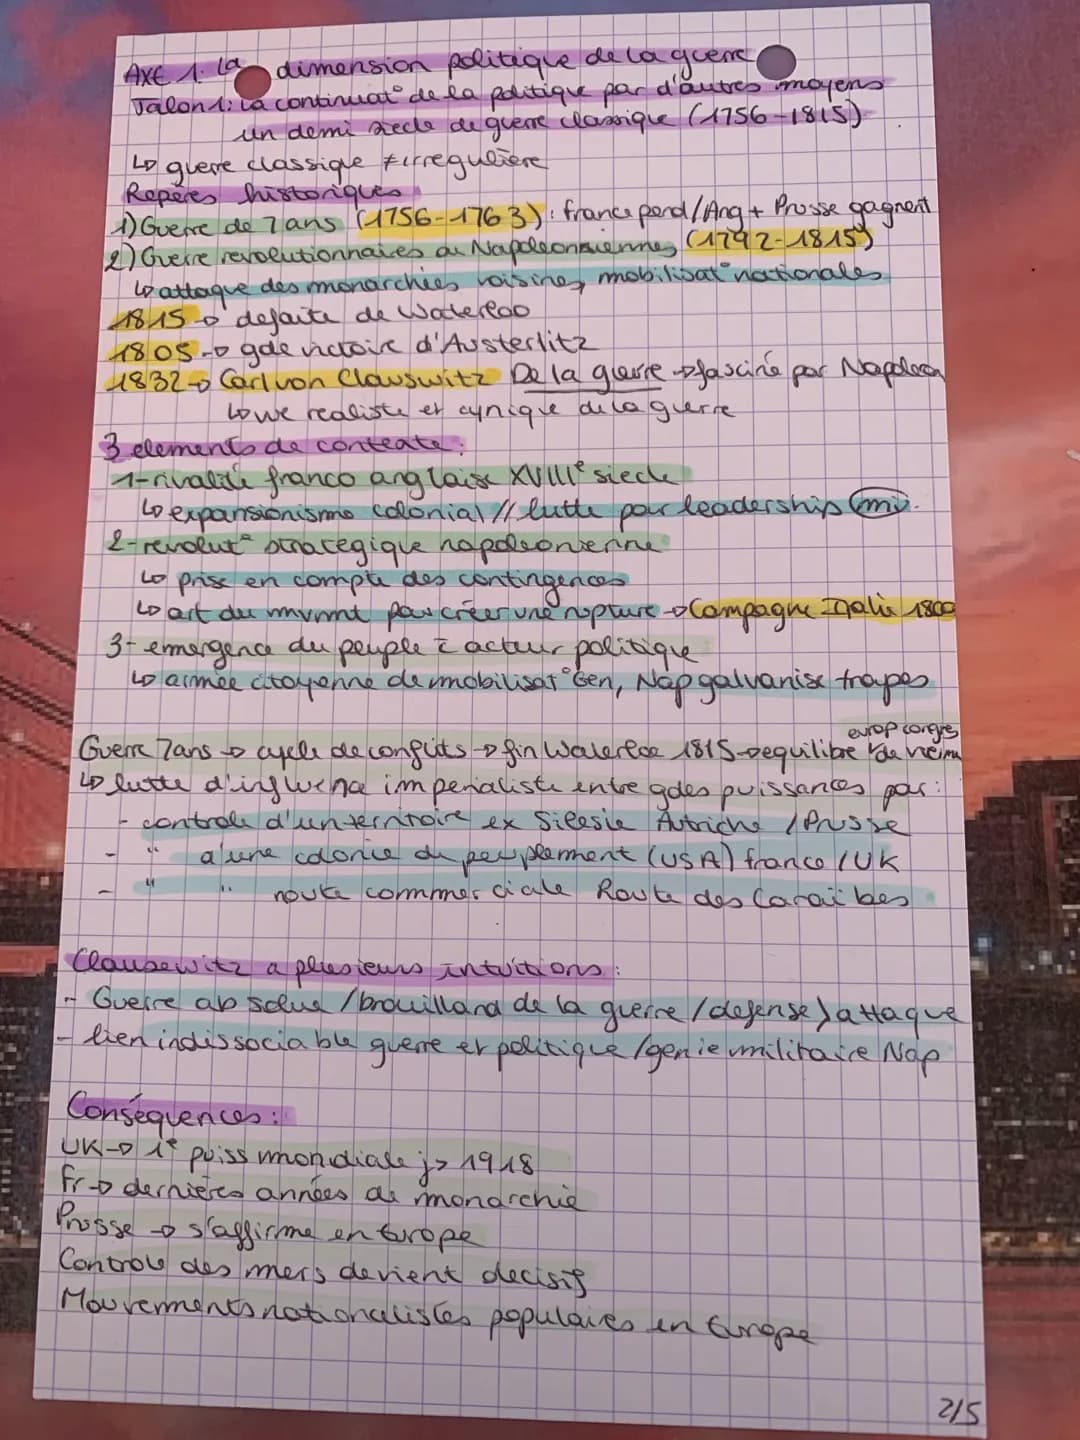 AXE 1: La dimension politique de la guerre
Jalon 1: La continuat° de la politique par d'autres moyens
un demi siecle de guerre classique (1756-1815)
↳ guerre classique ≠ irregulière
Repères historiques
1) Guerre de 7 ans (1756-1763) : france perd / Ang + Prusse gagnent
2) Guerre revolutionnaires ou Napoleonniennes (1792-1815)
↳ attaque des monarchies voisines, mobilisat° nationales
1815 → defaite de Waterloo
1805 → gde victoire d'Austerlitz
1832 → Carl von Clauswitz De la guerre → fasciné par Napoleon
↳ vue realiste et cynique de la guerre
3 elements de contexte :
1-rivalité franco anglaise XVIIIe siecle
↳ expansionisme colonial // lutte pour leadership mi.
2-revolut° strategique napoleonienne
↳ prise en compte des contingences
↳ art du mvmnt pour créer une rupture → Campagne Italie 1800
3- emergence du peuple c̄ acteur politique
↳ armée citoyenne de mobilisat° Gen, Nap galvanise troupes
europ congres
Guerre 7ans → cycle de conflits → fin Waterloo 1815 → equilibre de
↳ lutte d'influence imperialiste entre gdes puissances par :
- controle d'un territoire ex Silesie Autriche / Prusse
- " d'une colonie de peuplement (USA) france / UK
- " " route commerciale Route des Caraïbes
Clausewitz a plusieurs intuitions :
- Guerre absolue / brouillard de la guerre / defense > attaque
- lien indissociable guerre et politique / genie militaire Nap
Conséquences :
UK → 1e puiss mondiale j> 1918
Fr → dernières années de monarchie
Prusse → s'affirme en Europe
Controle des mers devient decisif
Mouvements nationalistes populaires en Europe
2/5